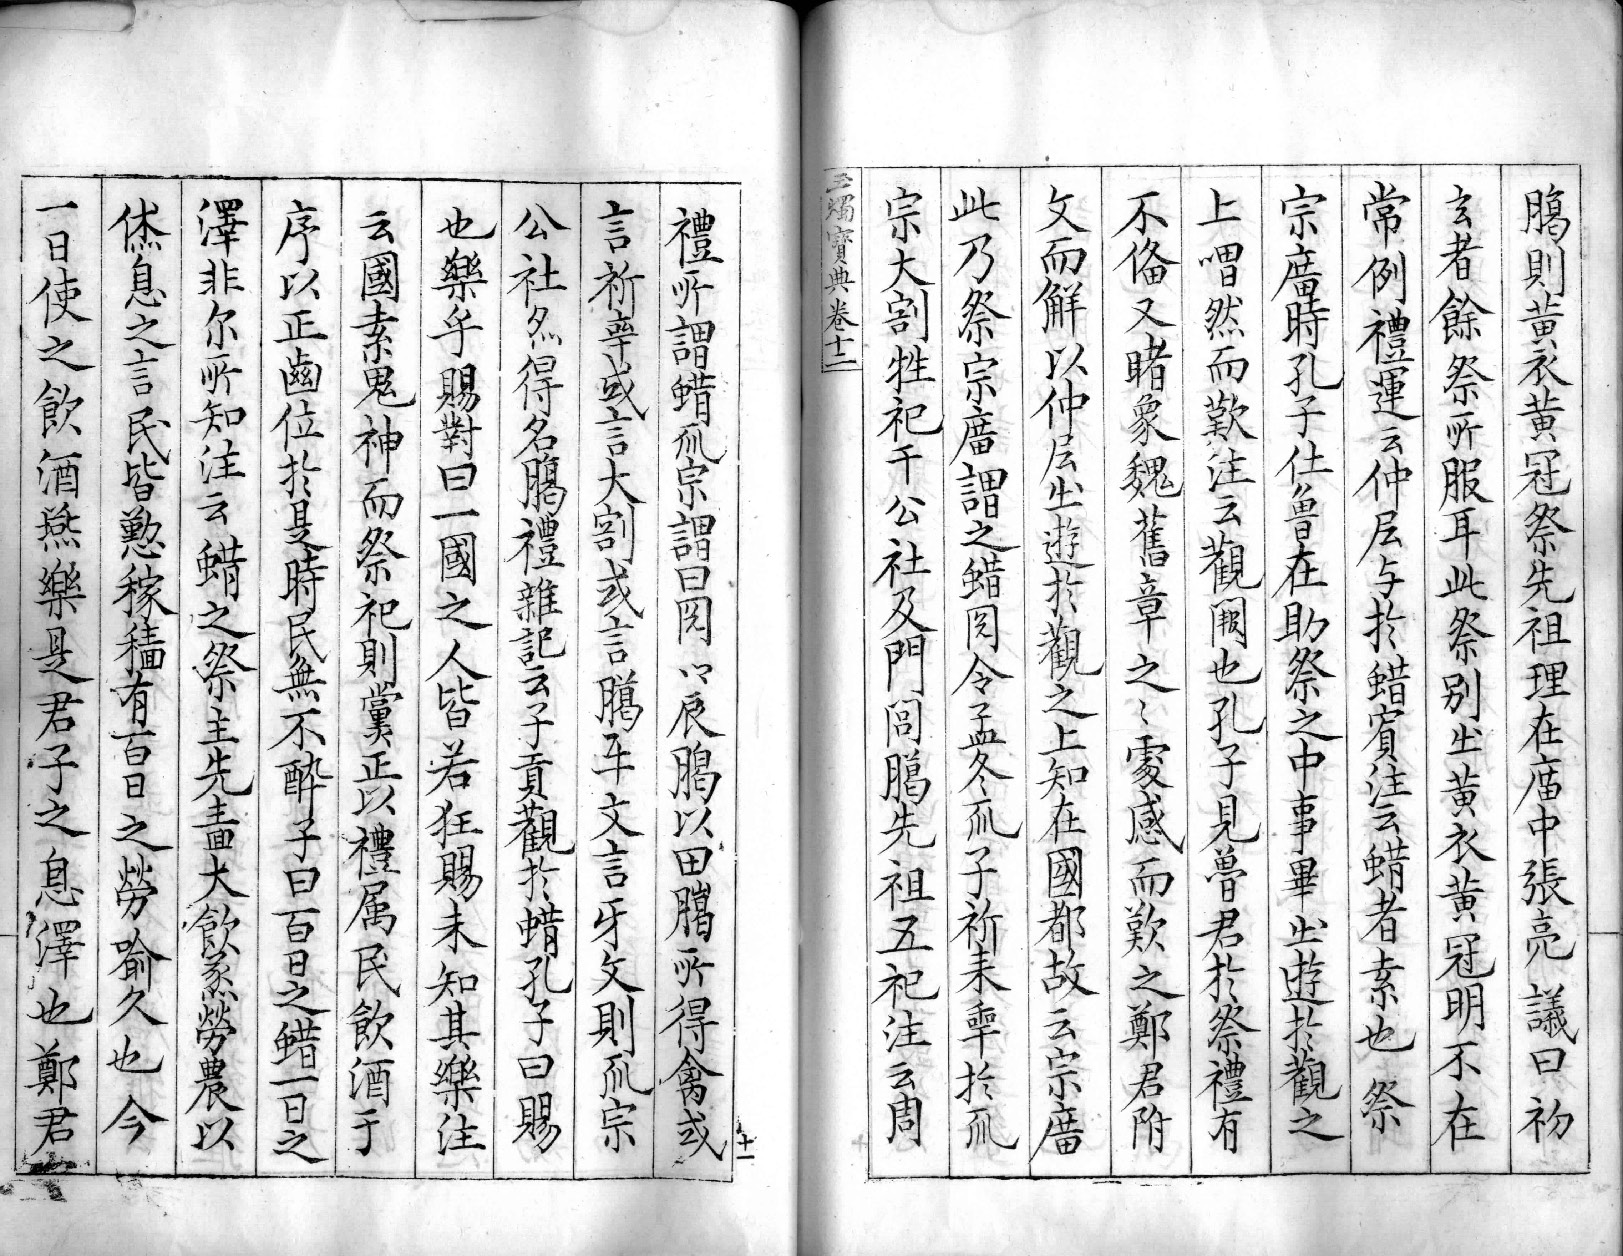 臈則黃衣黃冠祭先祖理在庿中張亮議曰初
玄者餘祭所服耳此祭別出黃衣黃冠明不在
常例禮運云仲层与於蜡賓注云蜡者索也祭
宗廣時孔子仕魯在助祭之中事畢出遊於觀之
上喟然而歎注云觀闕也孔子見魯君於祭禮有
不俻又睹象魏舊章之〻處感而歎之鄭君附
文而解以仲层出遊於觀之上知在國都故云宗廣
此乃祭宗廣謂之蜡罔令孟冬天子祈来秊於天
宗大割牲祀于公社及門閭臈先祖五祀注云周
玉燭寶典卷十二
禮所謂蜡天宗謂日罔以辰臈以田臈所得禽或
言祈秊或言大割或言臈平文言牙文則天宗
公社無得名臈禮雜記云子貢觀於蜡孔子曰賜
也樂乎賜對曰一國之人皆若狂賜未知其樂注
云國索鬼神而祭祀則黨正以禮属民飲酒于
序以正齒位於是時民無不醉子曰百日之蜡一日之
澤非尔所知注云蜡之祭主先嗇大飲烝勞農以
休息之言民皆懃稼穡有百日之勞喻久也今
一日使之飲酒燕樂是君子之息澤也鄭君
十一